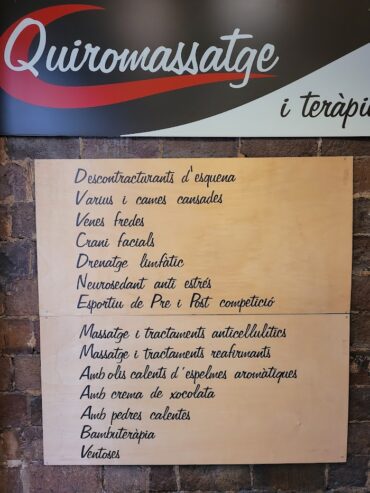 Quiromassatge
i teràpi
Descontracturants d'esquena
Varius i cames cansades
Venes fredes
Crani facials
Drenatge limfàtic
Neurosedant anti estrés
Esportiu de Pre i Post competició
Massatge i tractaments anticellulitics
Massatge i tractaments reafirmants
Amb olis calents d'espelmes aromàtiques
Amb crema de xocolata
Amb pedres calentes
Bambuteràpia
Ventoses